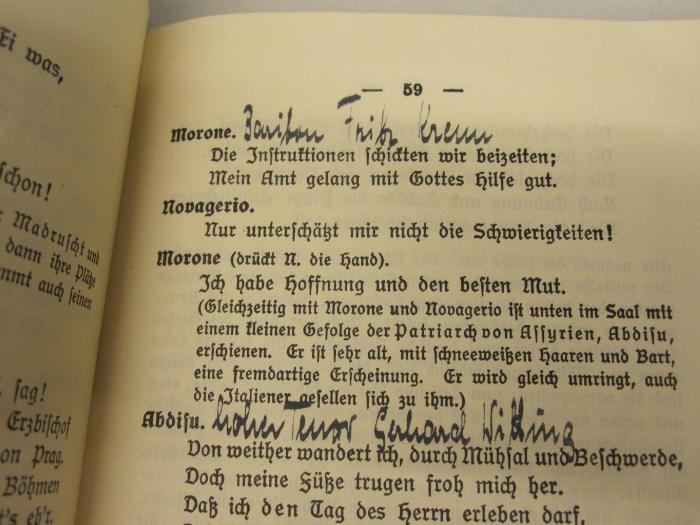 Ei was,
schon!
Madruscht und
dann ihre Plätze
mmt auch seinen
sag!
Erzbischof
on Prag.
Böhmen
's eh'r.
— 59 —
Morone. Bariton Fritz Krenn
Die Instruktionen schickten wir beizeiten;
Mein Amt gelang mit Gottes Hilfe gut.
Novagerio.
Nur unterschätzt mir nicht die Schwierigkeiten!
Morone (drückt N. die Hand).
Ich habe Hoffnung und den besten Mut.
(Gleichzeitig mit Morone und Novagerio ist unten im Saal mit
einem kleinen Gefolge der Patriarch von Assyrien, Abdisu,
erschienen. Er ist sehr alt, mit schneeweißen Haaren und Bart,
eine fremdartige Erscheinung. Er wird gleich umringt, auch
die Italiener gesellen sich zu ihm.)
Abdisu. hoher Tenor Gerhard Witting
Von weither wandert ich, durch Mühsal und Beschwerde,
Doch meine Füße trugen froh mich her.
Daß ich den Tag des Herrn erleben darf,